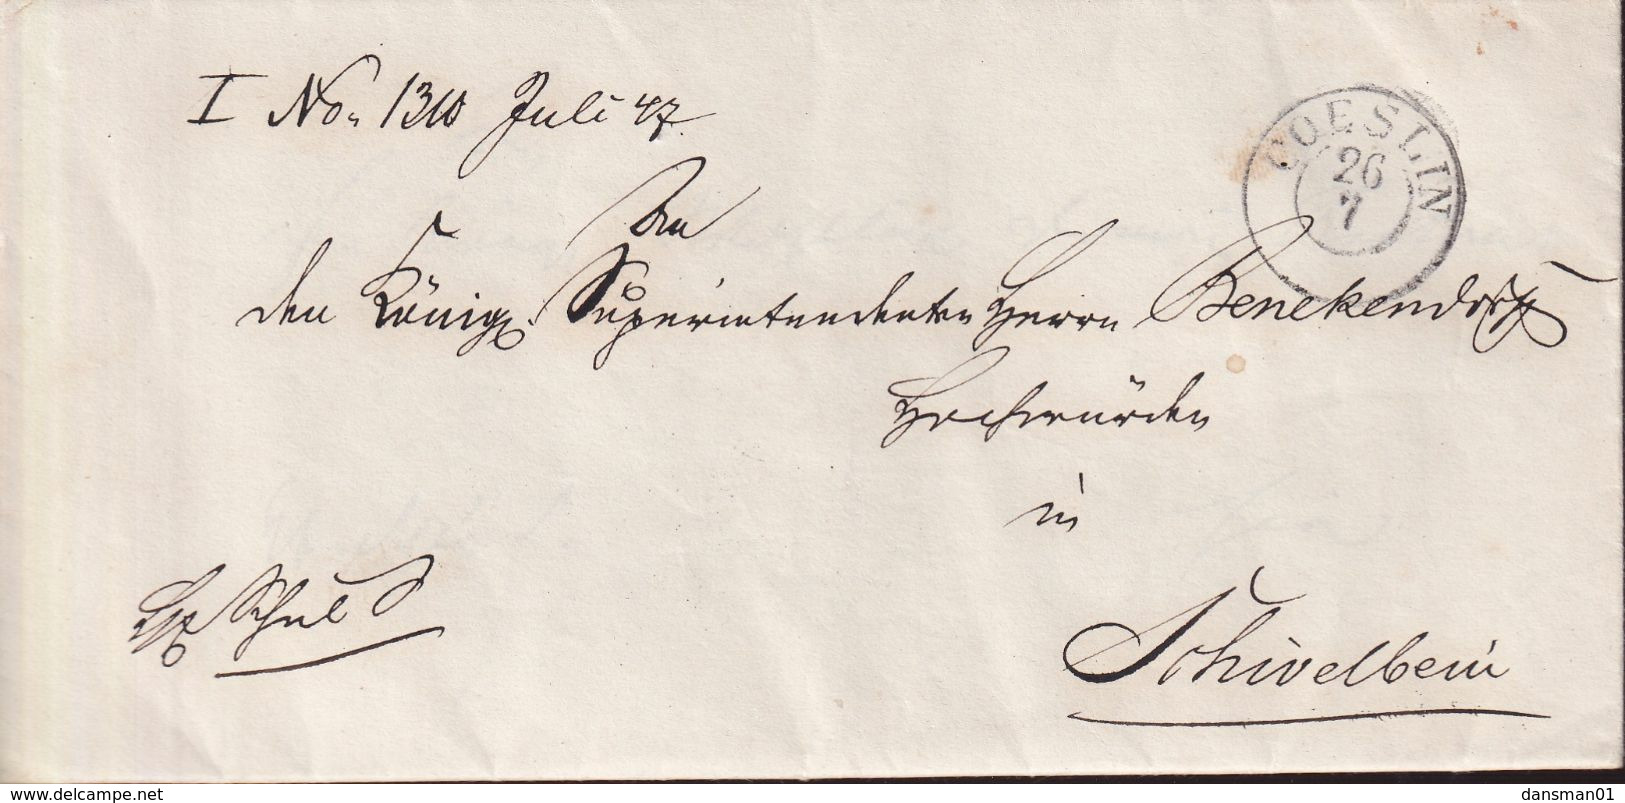 I No. 1310 Juli 47.
COESLIN
26
7
An
den Königl. Superintendenten Herrn Benekendorff
Hochwürden
in
Schul S
Schivelbein
www.delcampe.net
dansman01